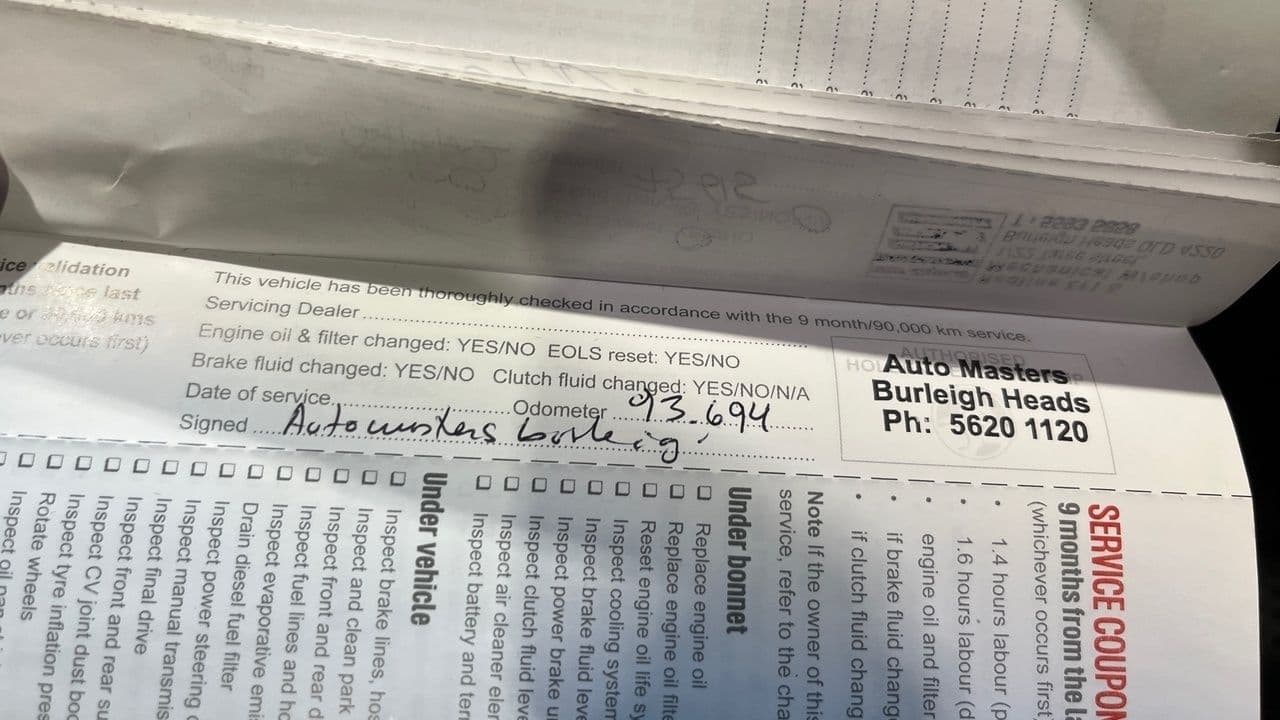 This vehicle has been thoroughly checked in accordance with the 9 month/90,000 km service.
Servicing Dealer
Engine oil & filter changed: YES/NO EOLS reset: YES/NO
Brake fluid changed: YES/NO Clutch fluid changed: YES/NO/N/A
Date of service Odometer 93.694
Signed Automasters
AUTHORISED
Auto Masters
Burleigh Heads
Ph: 5620 1120
lidation
last
e or kms
ver occurs first)
SERVICE COUPON
9 months from the
(whichever occurs first
• 1.4 hours labour
• 1.6 hours labour
• engine oil and filter
• if brake fluid
• if clutch fluid
Note If the owner of this
service, refer to the
Under bonnet
Replace engine oil
Replace engine oil
Reset engine oil life
Inspect cooling system
Inspect brake fluid
Inspect power brake
Inspect clutch fluid
Inspect air cleaner
Inspect battery and
Under vehicle
Inspect brake lines,
Inspect and clean park
Inspect front and rear
Inspect fuel lines and
Inspect evaporative
Drain diesel fuel filter
Inspect power steering
Inspect manual
Inspect final drive
Inspect front and rear
Inspect CV joint dust
Inspect tyre inflation
Rotate wheels
Inspect oil